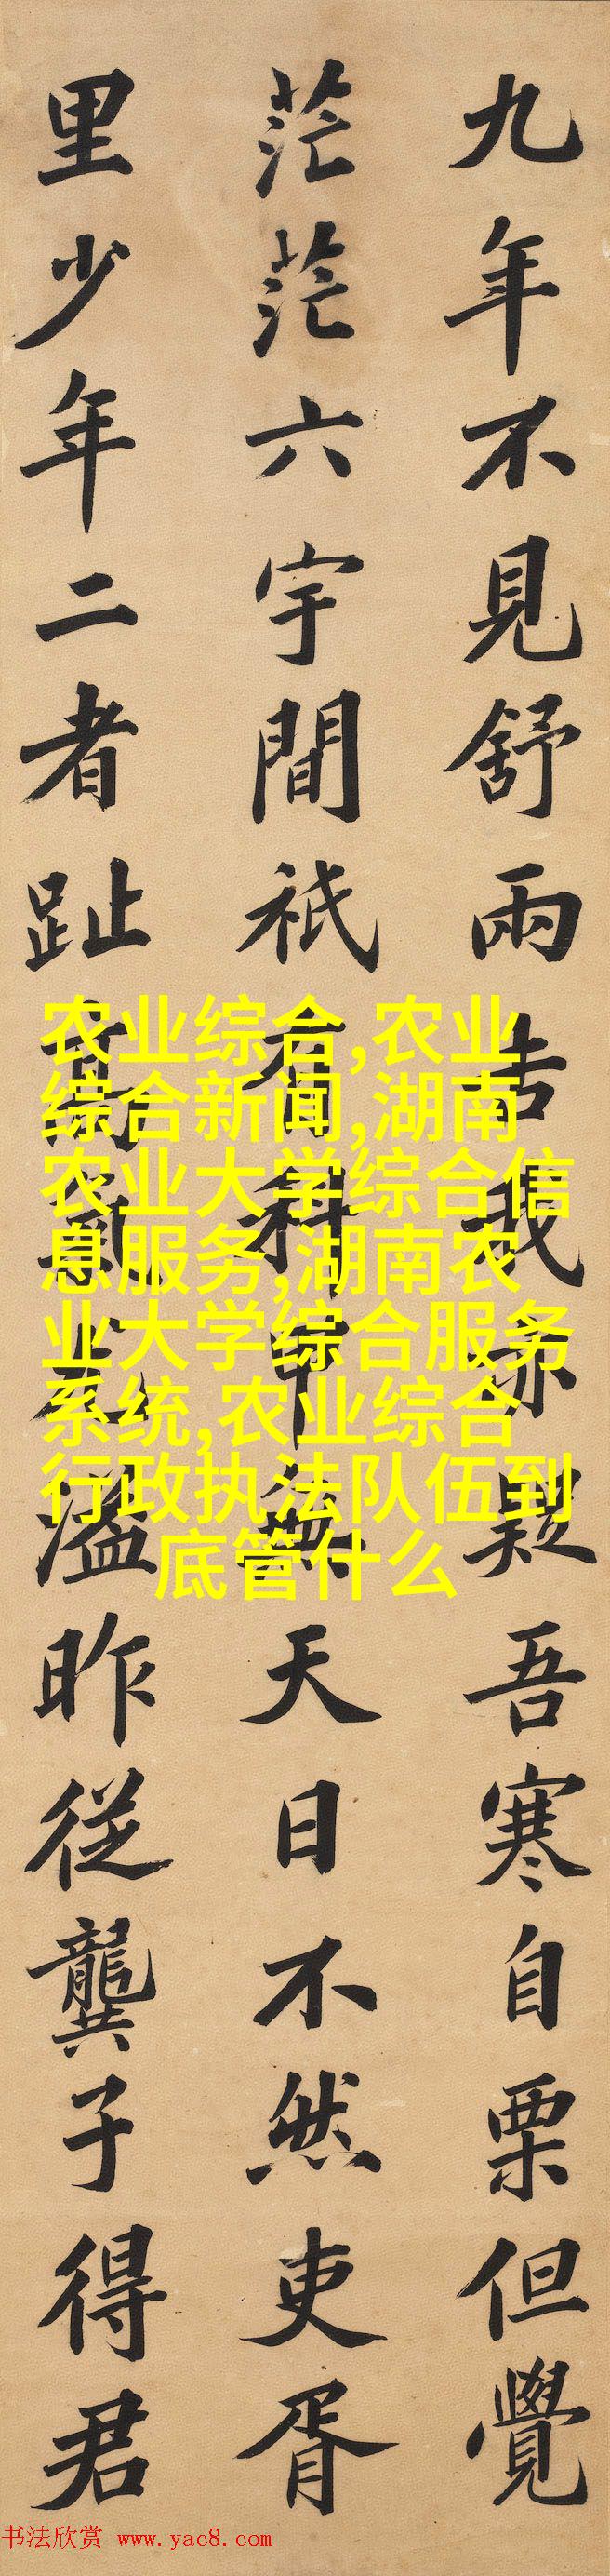 九年不見舒雨告我亦疑吾寒自栗但覺
茫茫六宇間祇有科甲無天日不然吏胥
里少年二者趾高氣尤濫昨從龔子得君
农业综合,农业
综合新闻,湖南
农业大学综合信
息服务,湖南农
业大学综合服务
系统,农业综合
行政执法队伍到
底管什么
书法欣赏 www.yac8.com